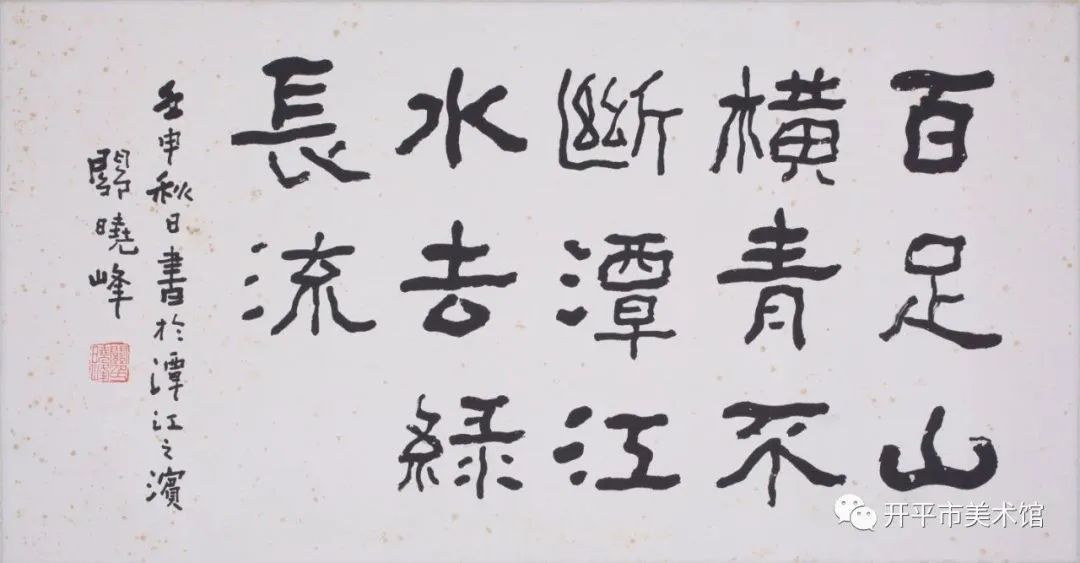 百足山
橫青不
斷潭江
水去綠
長流
壬申秋日書於潭江之濱
關曉峰
开平市美术馆